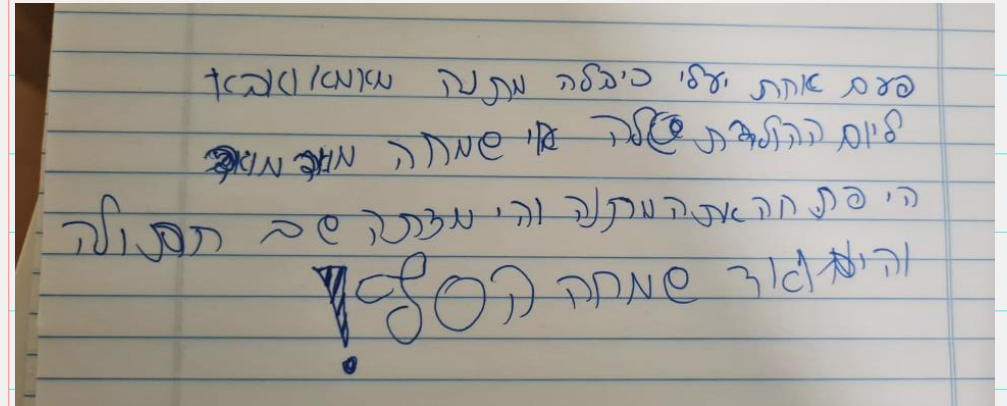 פעם אחת יעלי כיבלה מתנה מאמא ואבא
ליום ההולדת שלה שמחה
הי פתחה את המתנה והי מצתה שם חתולה
והי שמחה הסוף!